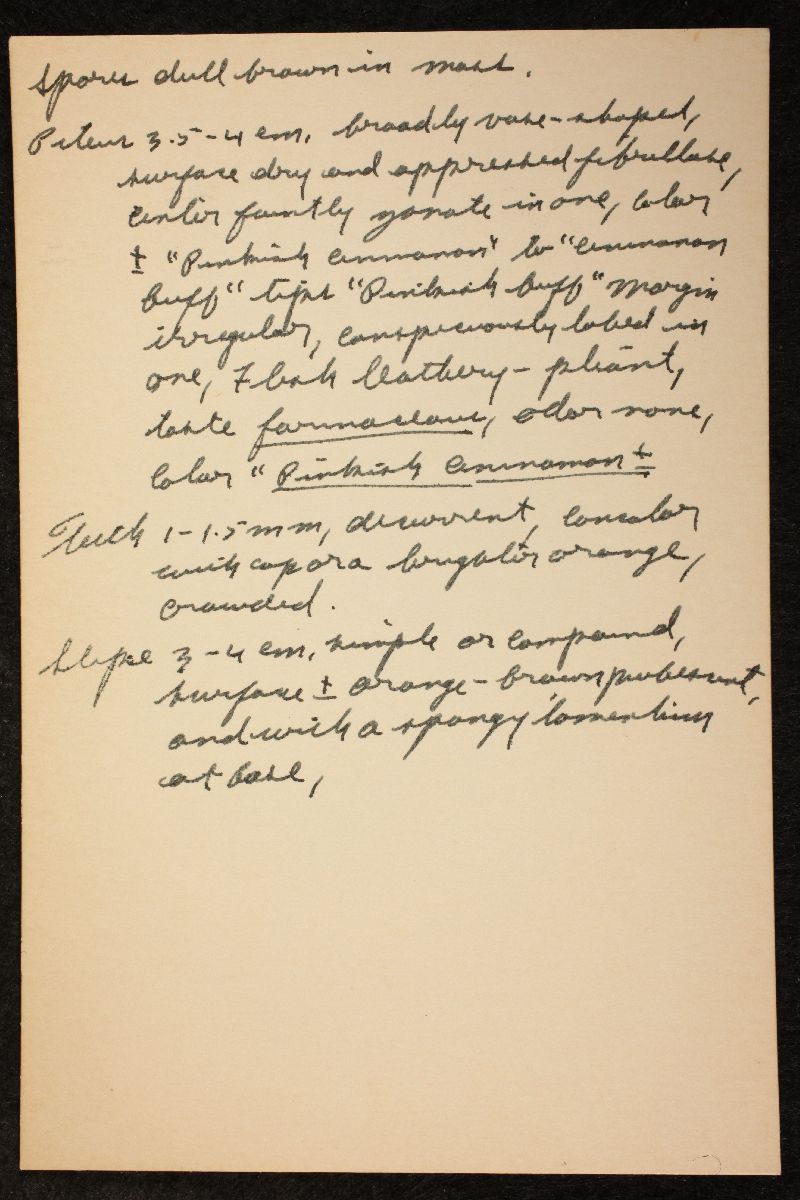 Spores dull brown in mass.
Pileus 3.5-4 cm. broadly vase-shaped,
surface dry and appressed fibrillose,
center faintly zonate in one, color
± "Pinkish cinnamon" to "cinnamon
buff" tips "Pinkish buff" margin
irregular, conspicuously lobed in
one, Flesh leathery-pliant,
taste farinaceous, odor none,
color "Pinkish cinnamon ±
Teeth 1-1.5 mm, decurrent, concolor
with cap or a brighter orange,
crowded.
Stipe 3-4 cm. simple or compound,
surface ± orange-brown pubescent,
and with a spongy tomentum
at base,